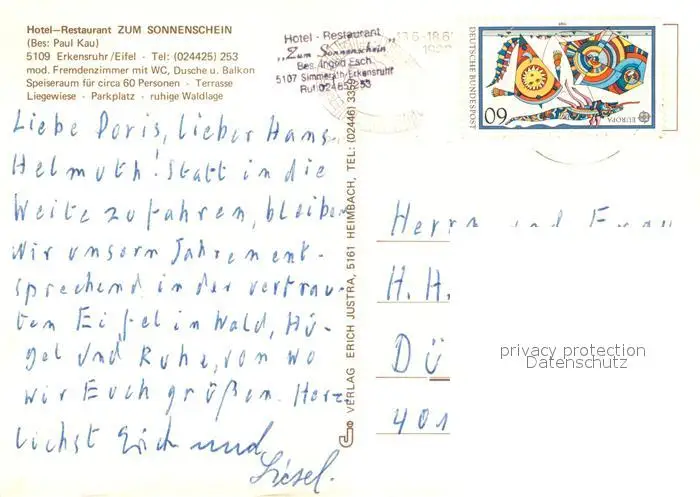 Hotel-Restaurant ZUM SONNENSCHEIN
(Bes: Paul Kau)
5109 Erkensruhr/Eifel - Tel: (024425) 253
mod. Fremdenzimmer mit WC, Dusche u. Balkon
Speiseraum für circa 60 Personen - Terrasse
Liegewiese - Parkplatz - ruhige Waldlage
Hotel - Restaurant
„Zum Sonnenschein"
Bes. Angold Esch
5107 Simmerath-Erkensruhr
Liebe Doris, lieber Hans-
Helmuth! Statt in die
Weite zu fahren, bleiben
wir unsern Jahren ent-
sprechend in der vertrau-
ten Eifel in Wald, Hü-
gel und Ruhe, von wo
wir Euch grüßen. Herz-
lichst Erich und
Liesel.
VERLAG ERICH JUSTRA, 5161 HEIMBACH, TEL: (02446) 3339
DEUTSCHE BUNDESPOST
60
EUROPA
Herrn und Frau
H. H.
Dü
401
privacy protection
Datenschutz